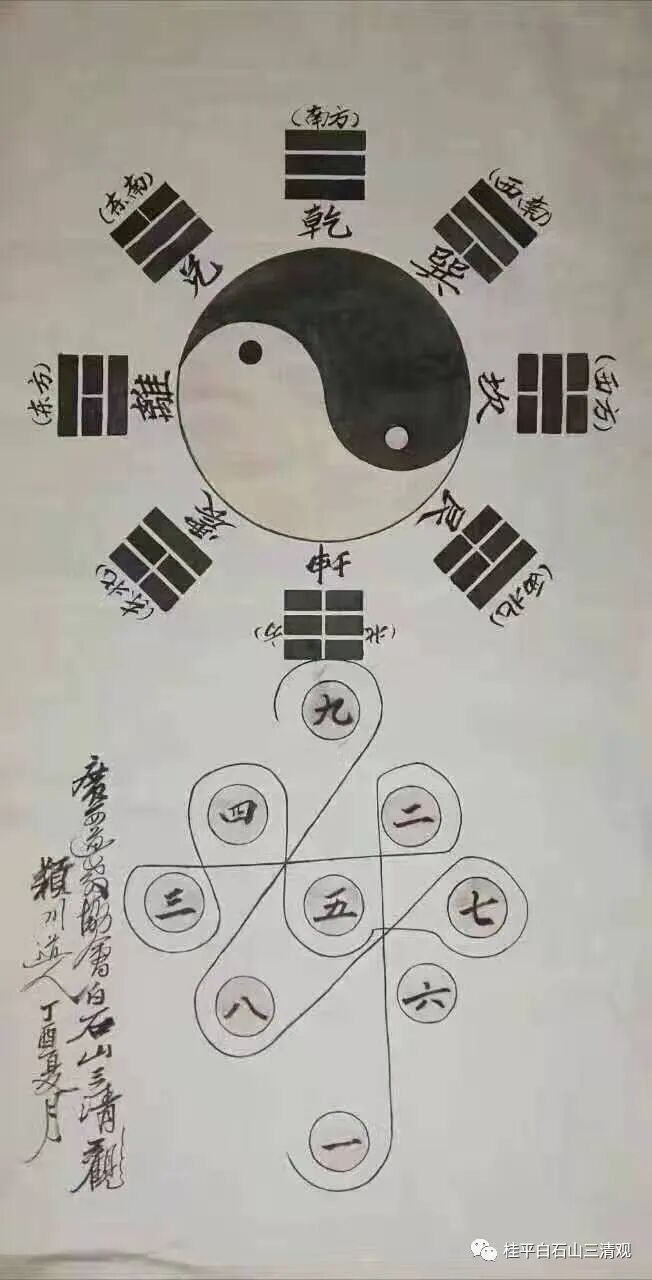 (南方)
乾
(东南)
兑
(西南)
巽
(东方)
離
(西方)
坎
(东北)
震
(西北)
艮
(北方)
九
四
二
三
五
七
八
六
一
廣西道教協會白石山三清觀
潁川道人 丁酉夏月
桂平白石山三清观